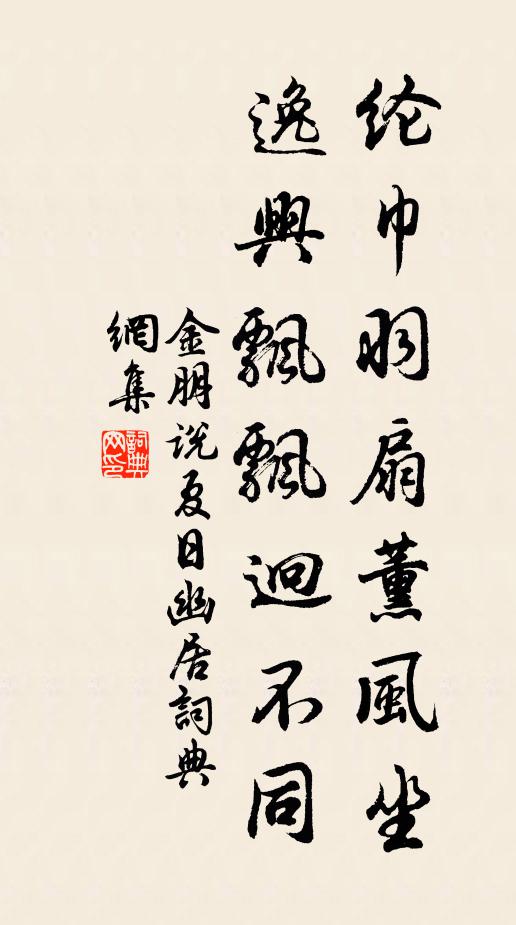 纶巾羽扇薰風坐
逸興飄飄迥不同
金朋说夏日幽居詞典
網集
詞典
网印